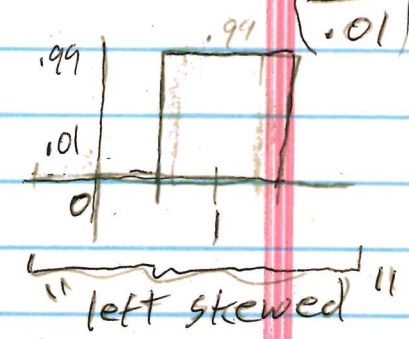 .99
(.01
.99
.01
0
1
"left skewed"